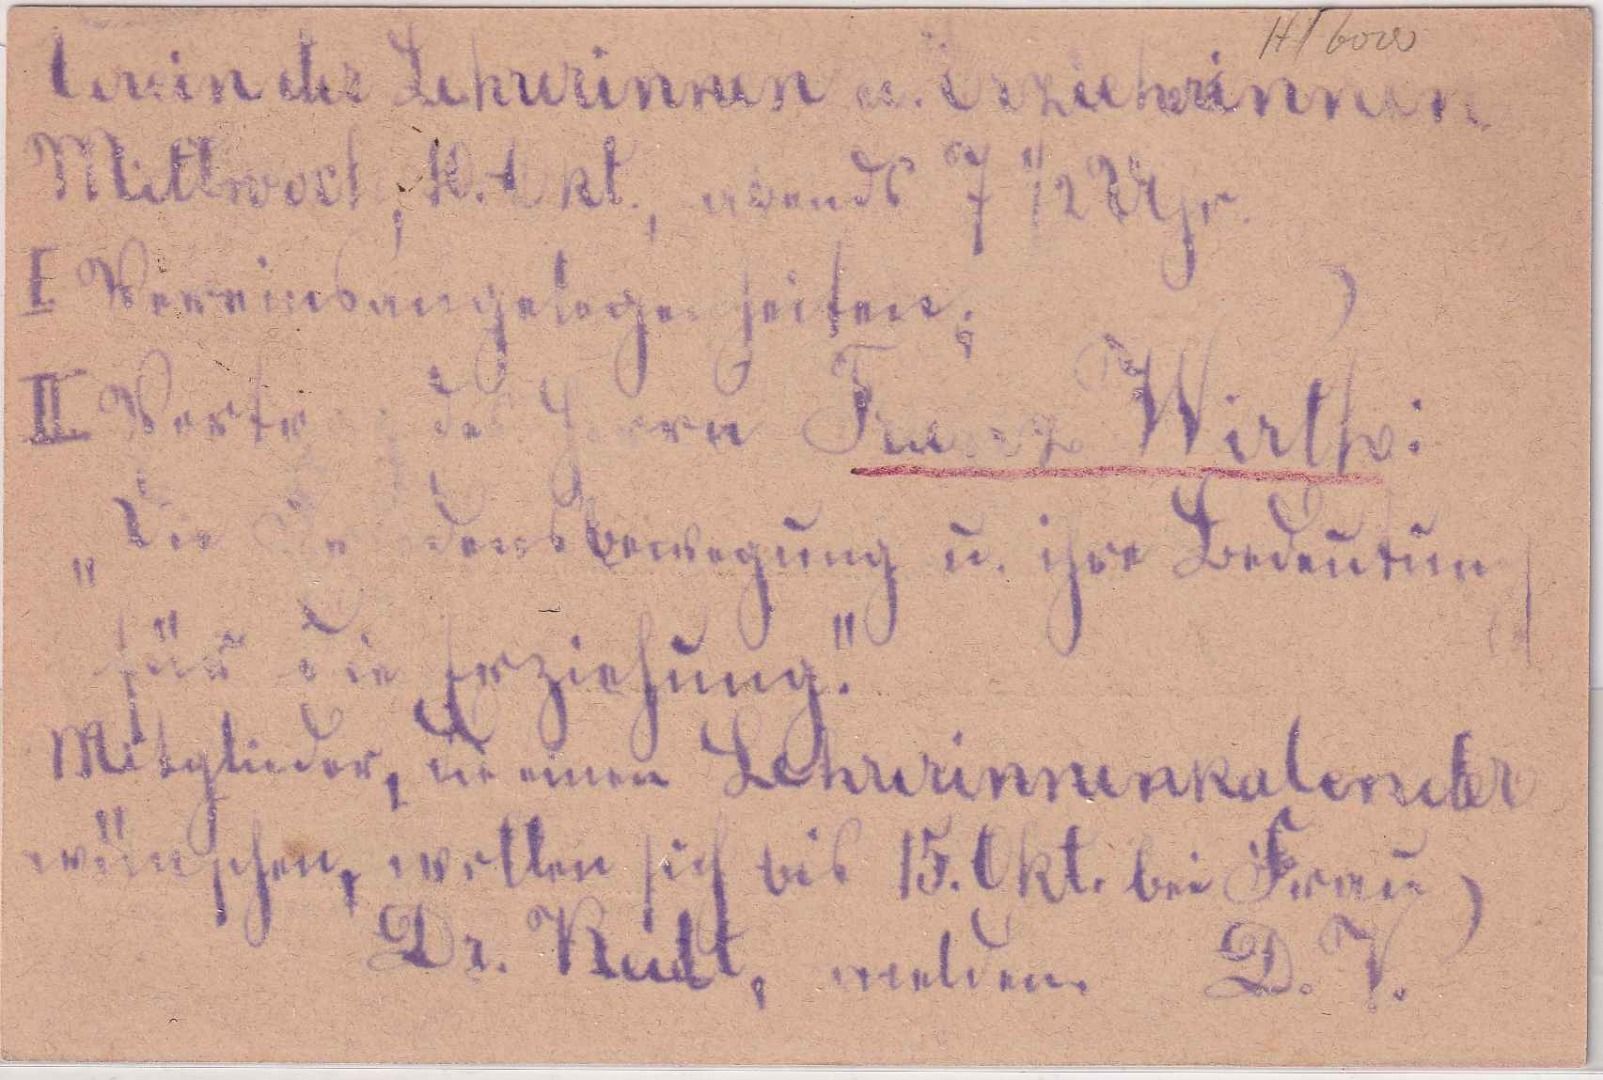 Verein der Lehrerinnen u. Erzieherinnen
Mittwoch, 10. Okt., abends 7 1/2 Uhr.
I Vereinsangelegenheiten;
II Vortrag des Herrn Franz Wirth:
„Die Friedensbewegung u. ihre Bedeutung
für die Erziehung."
Mitglieder, die einen Lehrerinnenkalender
wünschen, wollen sich bis 15. Okt. bei Frau
Dr. melden. D. V.